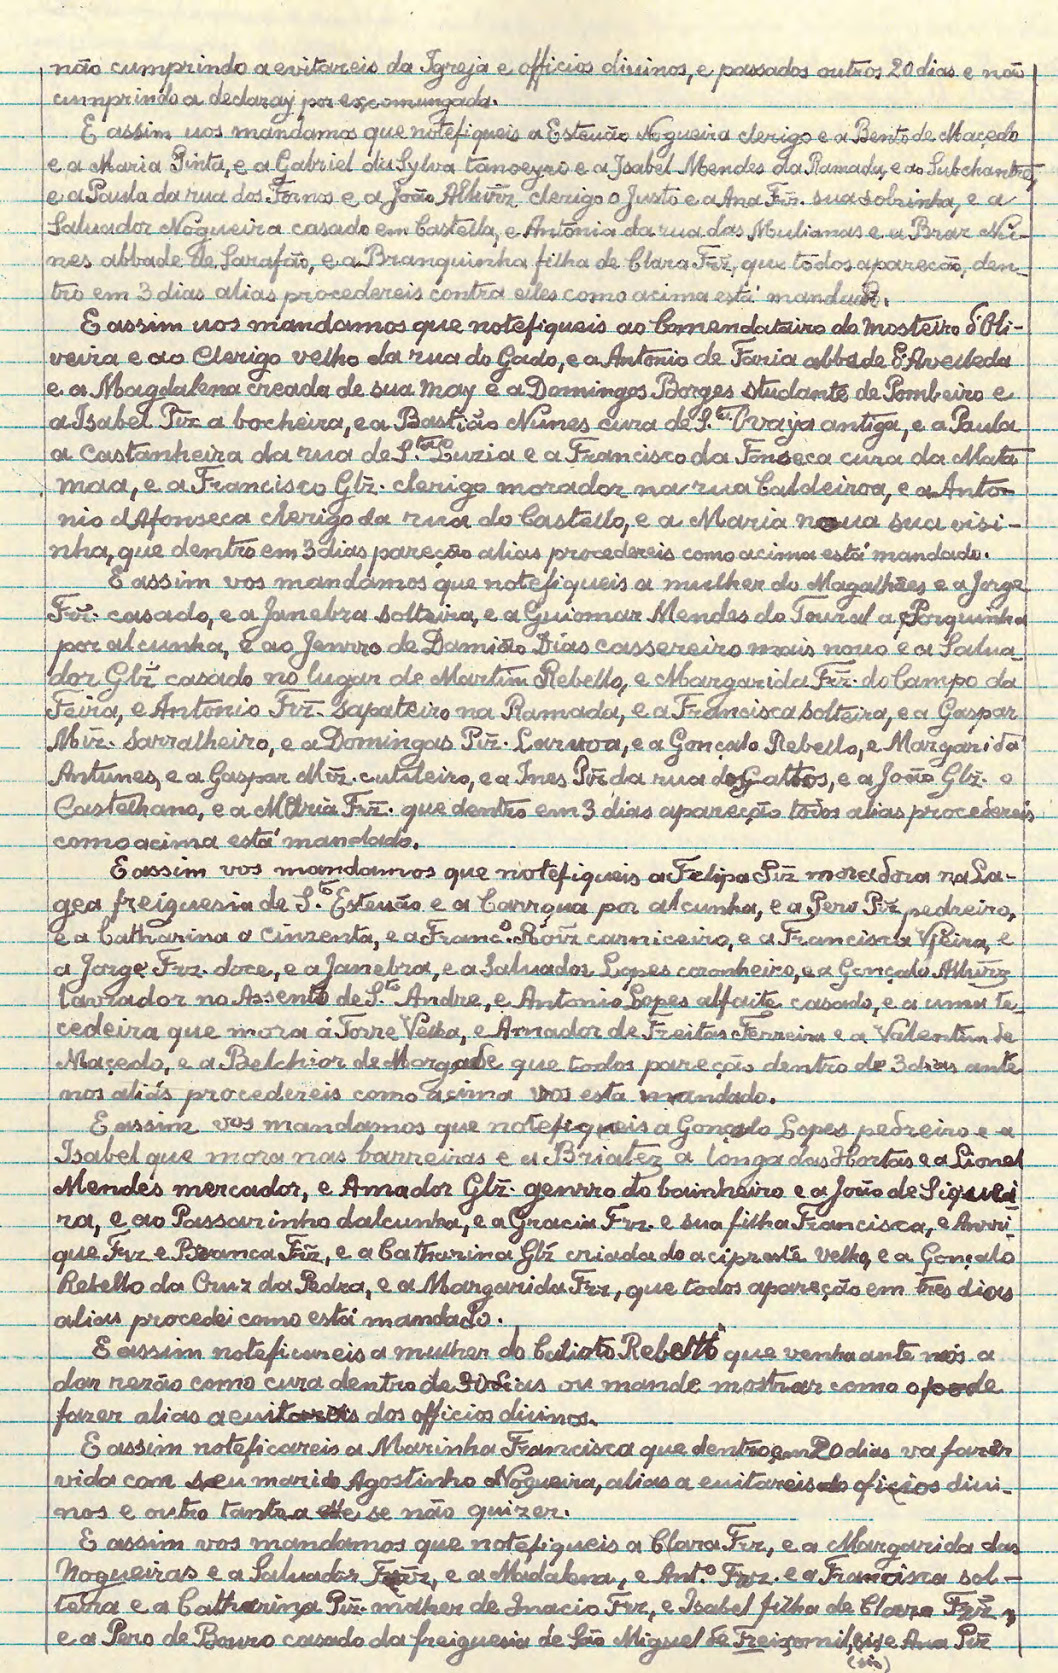 não cumprindo a evitareis da Igreja e officios divinos, e passados outros 20 dias e não
cumprindo a declaray por excomungada.
E assim uos mandamos que notefiqueis a Esteuão Nogueira clerigo e a Bento de Macedo
e a Maria Pinta, e a Gabriel da Sylva tanoeyro e a Isabel Mendes da Ramada, e ao Subchantre,
e a Paula da rua dos Fornos e a João Alũrz clerigo o Justo e a Ana Frz. sua sobrinha, e a
Saluador Nogueira casado em Castella, e Antonia da rua das Mulianas e a Braz Nu-
nes abbade de Sarafão, e a Branquinha filha de Clara Frz, que todos apareção, den-
tro em 3 dias alias procedereis contra elles como acima está mandado.
E assim uos mandamos que notefiqueis ao Comendatairo do mosteiro d'Oli-
veira e ao Clerigo velho da rua do Gado, e a Antonio de Faria abbade d'Aveleda
e a Magdalena creada de sua may e a Domingos Borges studante de Pombeiro e
a Isabel Pirz a bocheira, e a Bastião Nunes cura de S.ta Ovaya antiga, e a Paula
a Castanheira da rua de S.ta Luzia e a Francisco da Fonseca cura da Mata
maa, e a Francisco Glz. clerigo morador na rua Caldeiroa, e a Anto-
nio dAfonseca clerigo da rua do Castello, e a Maria noua sua visi-
nha, que dentro em 3 dias pareção alias procedereis como acima está mandado.
E assim vos mandamos que notefiqueis a mulher do Magalhães e a Jorge
Frz. casado, e a Janebra solteira, e a Guiomar Mendes do Toural a Porquinha
por alcunha, e ao Jenrro de Damião Dias cassereiro mais nouo e a Salua-
dor Glz casado no lugar de Martim Rebello, e Margarida Frz. do Campo da
Feira, e Antonio Frz. sapateiro na Ramada, e a Francisca solteira, e a Gaspar
Mirz. sarralheiro, e a Domingas Pirz. Laruoa, e a Gonçalo Rebello, e Margarida
Antunes, e a Gaspar Mirz. cutileiro, e a Ines Pirz da rua de Gattos, e a João Glz. o
Castelhano, e a Maria Frz. que dentro em 3 dias apareção todos alias procedereis
como acima está mandado.
E assim vos mandamos que notefiqueis a Felipa Pirz moradora na La-
gea freiguesia de S.to Esteuão e a Carrqua por alcunha, e a Pero Pirz pedreiro,
e a Catharina a Cinzenta, e a Franc.o Roiz carniceiro, e a Francisca Vieira, e
a Jorge Frz. doce, e a Janebra, e a Saluador Lopes coronheiro, e a Gonçalo Alũrz
laurador no Assento de S.to Andre, e Antonio Lopes alfaite casado, e a uma te-
cedeira que mora á Torre Velha, e Amador de Freitas Ferreira e a Valentim de
Macedo, e a Belchior de Morgade que todos pareção dentro de 3 dias ante
nos aliás procedereis como acima vos está mandado.
E assim vos mandamos que notefiqueis a Gonçalo Lopes pedreiro e a
Isabel que mora nas barreiras e a Briatez a longa das Hortas e a Lionel
Mendes mercador, e Amador Glz. genrro do bainheiro e a João de Siquei
ra, e ao Passarinho dalcunha, e a Gracia Frz. e sua filha Francisca, e Anrri-
que Frz e Branca Frz, e a Catharina Glz criada do acipreste velho, e a Gonçalo
Rebello da Cruz da Pedra, e a Margarida Frz, que todos apareção em tres dias
alias procedei como está mandado.
E assim noteficareis a mulher do Calisto Rebello que venha ante nós a
dar rezão como cura dentro de 3 dias ou mande mostrar como o pode
fazer alias a euitareis dos officios diuinos.
E assim noteficareis a Marinha Francisca que dentro em 20 dias va fazer
vida com seu marido Agostinho Nogueira, alias a euitareis dos oficios diui-
nos e outro tanto a elle se não quizer.
E assim vos mandamos que notefiqueis a Clara Frz, e a Margarida das
Nogueiras e a Saluador Frz, e a Madalena, e Ant.o Frz. e a Francisca sol-
teira e a Catharina Pirz. mulher de Inacio Frz, e Isabel filha de Clara Frz,
e a Pero de Bouro casado da freiguesia de São Miguel de Freizomil, e Ana Pirz
(sio)